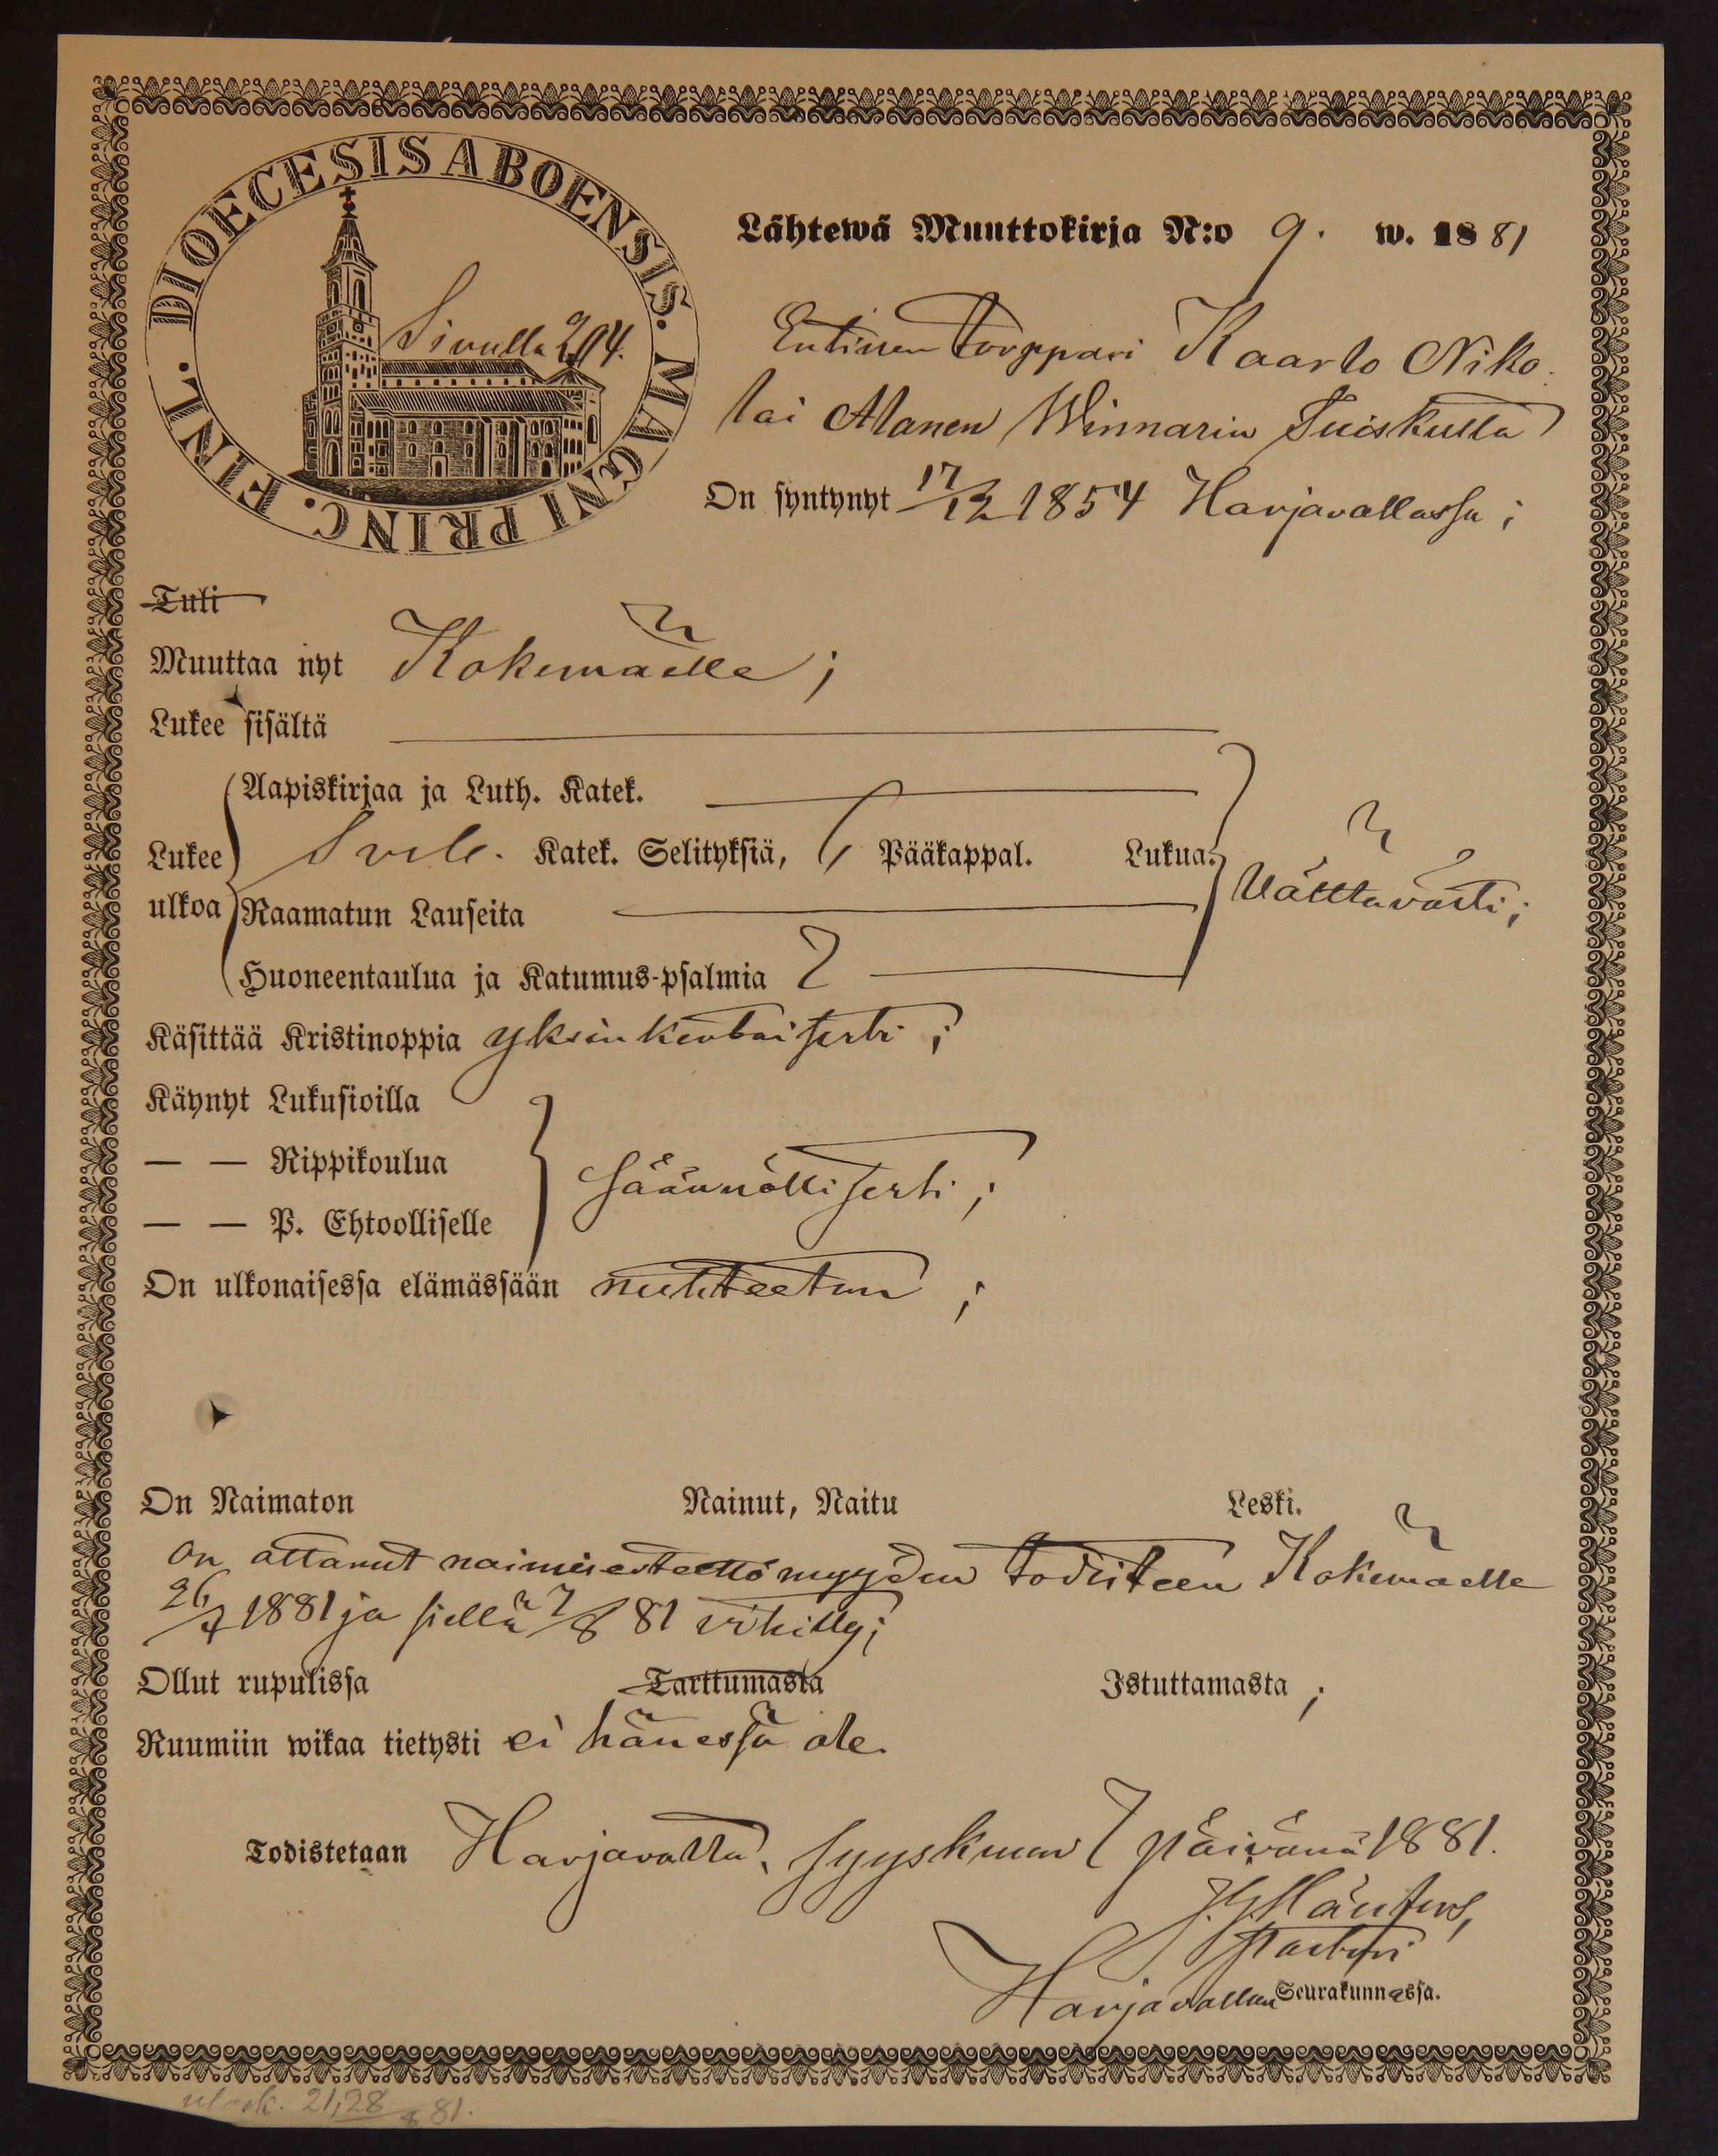 DIOECESIS ABOENSIS. MAGNI PRINC. FINL.
Sivulla 204.
Lähtewä Muuttokirja N:o 9. w. 1881
Entinen Torppari Kaarlo Niko
lai Alanen Winnarin Suiskulta
On syntynyt 17/12 1854 Harjavallassa;
Tuli
Muuttaa nyt Kokemäelle;
Lukee sisältä
Aapiskirjaa ja Luth. Katek.
Lukee ulkoa Sveb. Katek. Selityksiä, Pääkappal. Lukua. Välttävästi;
Raamatun Lauseita
Huoneentaulua ja Katumus-psalmia
Käsittää Kristinoppia yksinkertaisesti;
Käynyt Lukusioilla
— — Rippikoulua
säännöllisesti;
— — P. Ehtoolliselle
On ulkonaisessa elämässään nuhteeton;
On Naimaton Nainut, Naitu Leski.
on ottanut naimaesteettömyyden todisteen Kokemäelle
26/7 1881 ja siellä 7/8 81 vihitty;
Ollut rupulissa Tarttumasta Istuttamasta;
Ruumiin wikaa tietysti ei hänessä ole.
Todistetaan Harjavalta, syyskuun 7 päivänä 1881.
pastori
Harjavallan Seurakunnassa.
21,28/8 81.